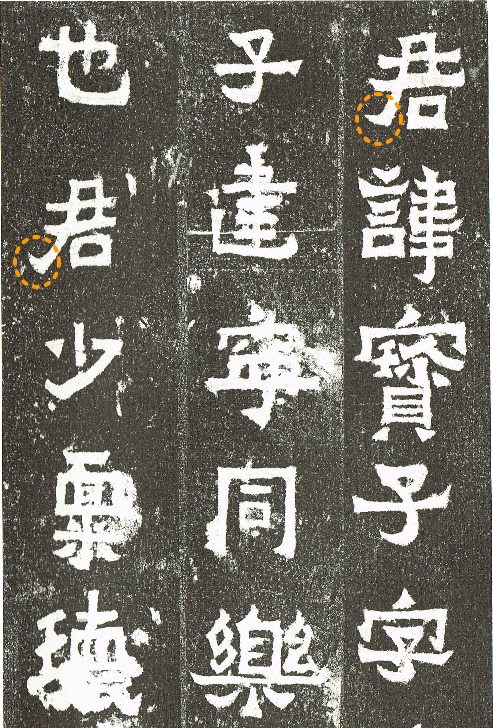 君諱寶子字
子建寧同樂
也君少稟瓌